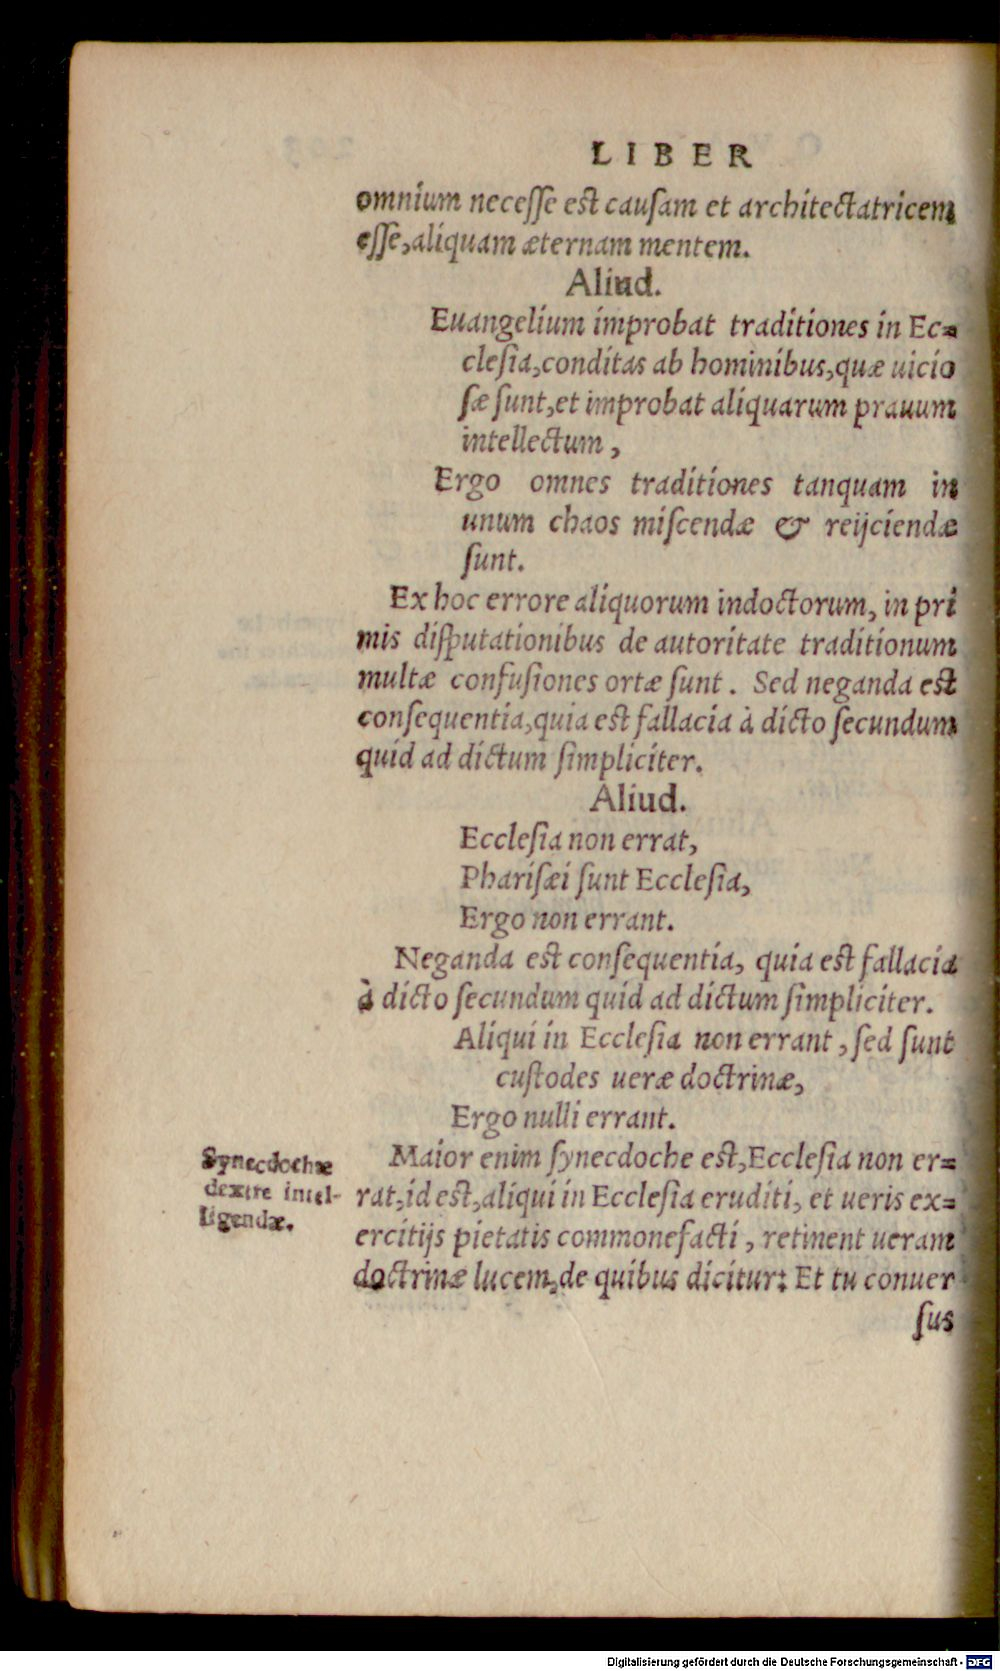 LIBER
omnium necesse est causam et architectatricem
esse, aliquam æternam mentem.
Aliud.
Euangelium improbat traditiones in Ec=
clesia, conditas ab hominibus, quæ uicio
sæ sunt, et improbat aliquarum prauum
intellectum,
Ergo omnes traditiones tanquam in
unum chaos miscendæ & reijciendæ
sunt.
Ex hoc errore aliquorum indoctorum, in pri
mis disputationibus de autoritate traditionum
multæ confusiones ortæ sunt. Sed neganda est
consequentia, quia est fallacia à dicto secundum
quid ad dictum simpliciter.
Aliud.
Ecclesia non errat,
Pharisæi sunt Ecclesia,
Ergo non errant.
Neganda est consequentia, quia est fallacia
à dicto secundum quid ad dictum simpliciter.
Aliqui in Ecclesia non errant, sed sunt
custodes ueræ doctrinæ,
Ergo nulli errant.
Synecdochæ
dextre intel-
ligendæ.
Maior enim synecdoche est, Ecclesia non er=
rat, id est, aliqui in Ecclesia eruditi, et ueris ex=
ercitijs pietatis commonefacti, retinent ueram
doctrinæ lucem, de quibus dicitur: Et tu conuer
sus
Digitalisierung gefördert durch die Deutsche Forschungsgemeinschaft - DFG